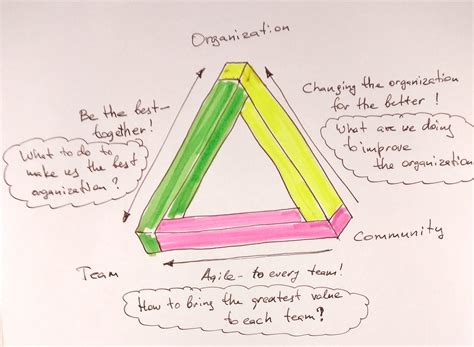 Organization
Be the best-
together!
What to do to
make us the best
organization?
Changing the organization
for the better!
What are we doing
to improve
the organization
Team
Community
Agile - to every team!
How to bring the greatest value
to each team?